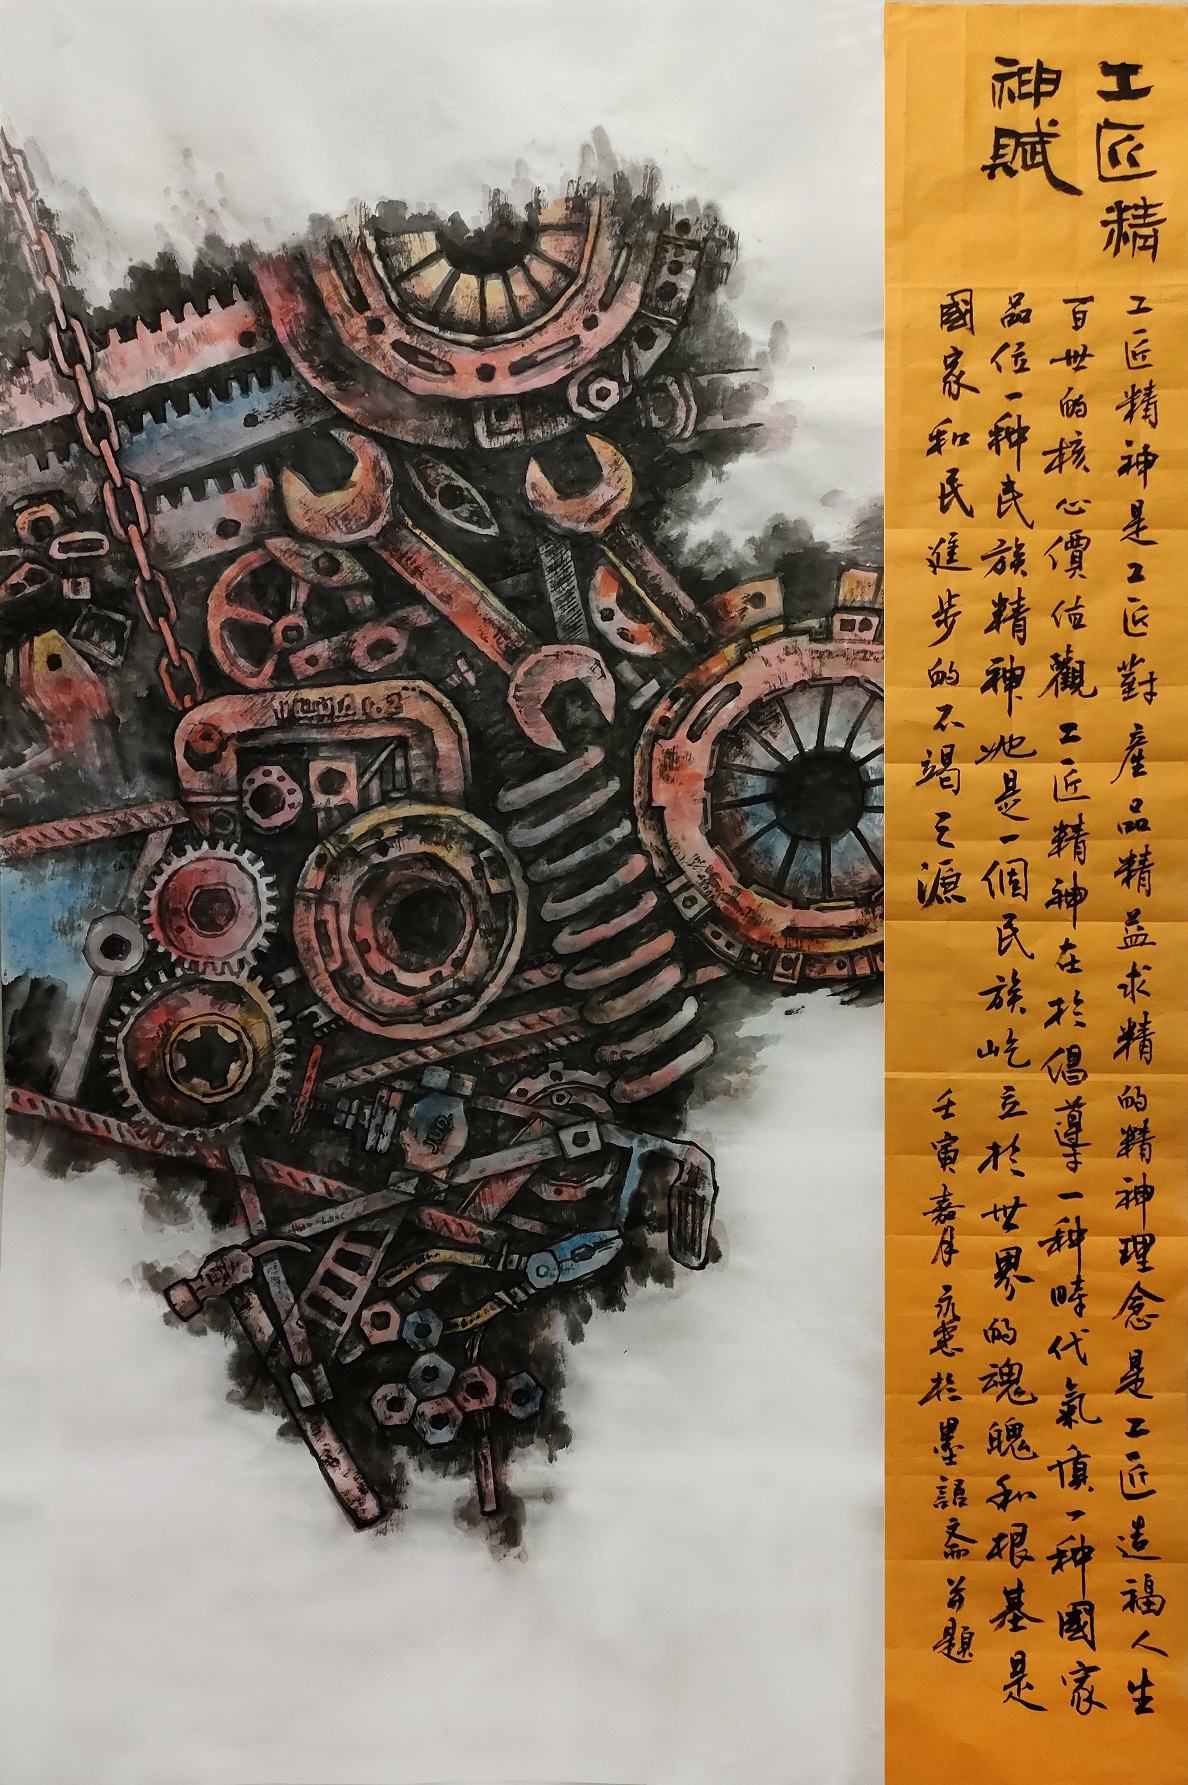 工匠精
神賦
工匠精神是工匠對產品精益求精的精神理念是工匠造福人生
百世的核心價值觀工匠精神在於倡導一種時代氣慎一種國家
品位一种民族精神她是一個民族屹立於世界的魂魄和根基是
國家和民進步的不竭之源
壬寅嘉月 於墨語斋並題